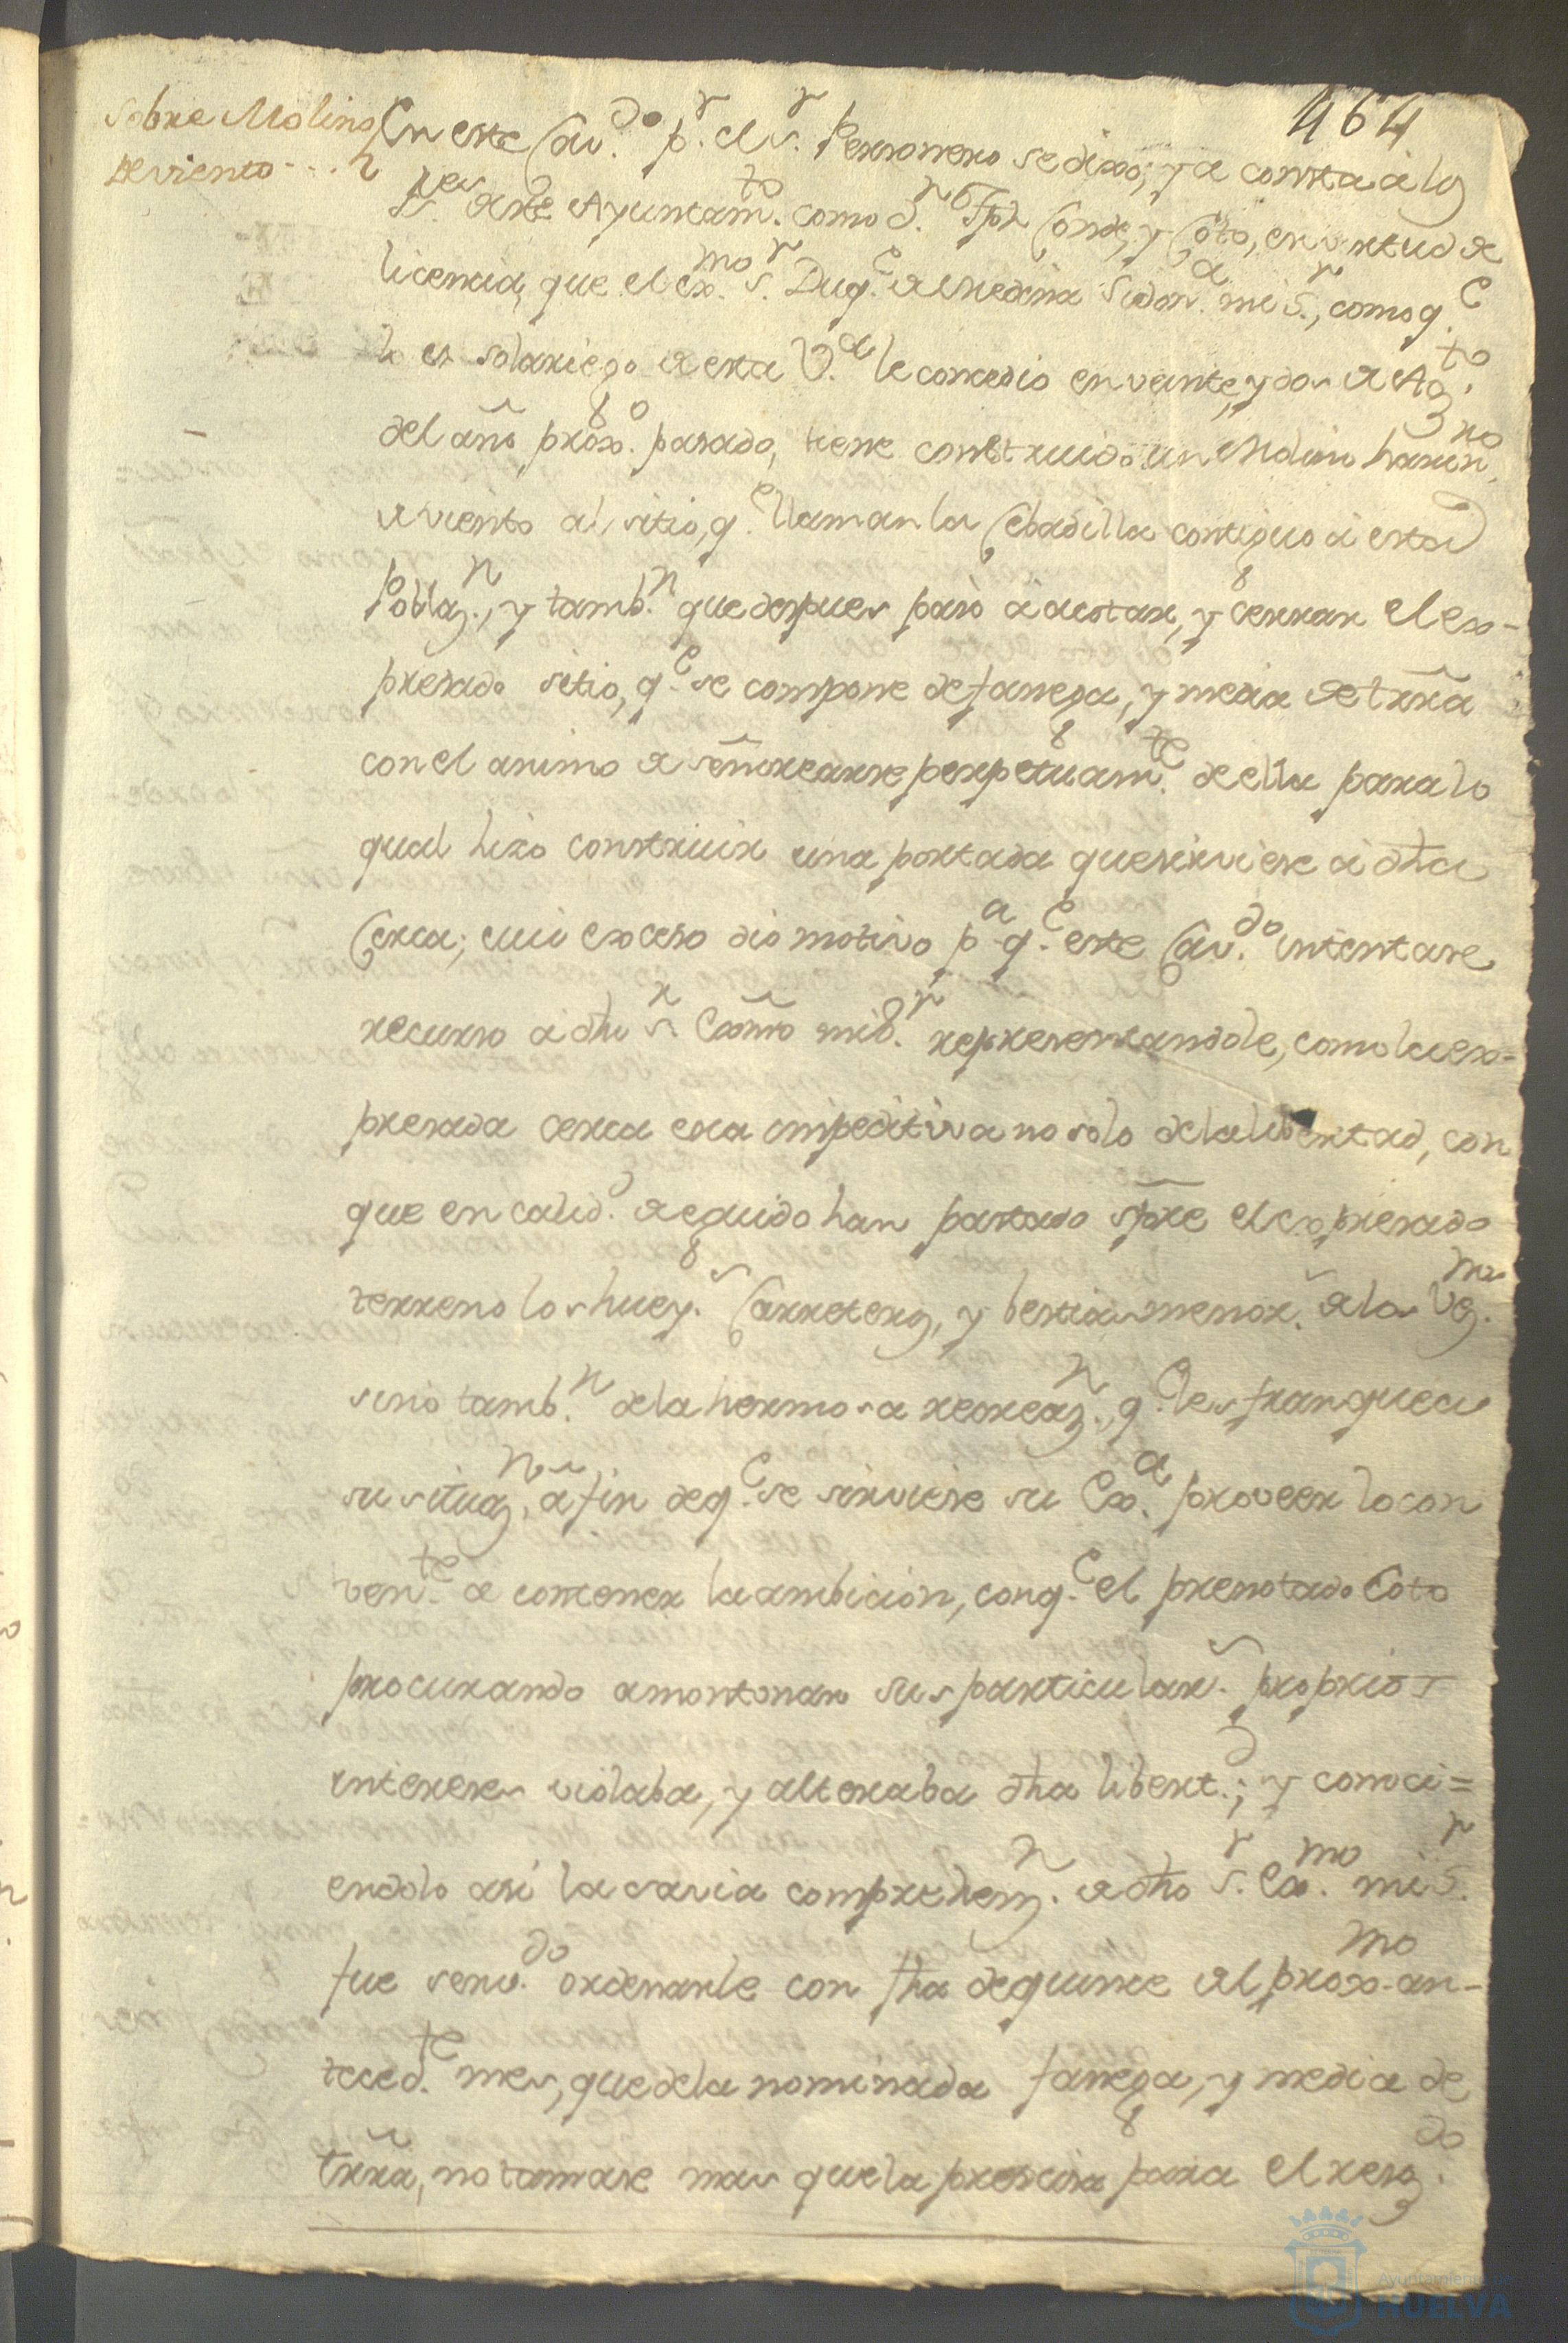 464
Sobre Molino
de viento - - - 2
En este Cav.do p.r el s.r Personero se dixo, ya consta a los
S.res de este Ayuntam.to como d.n Tph Conde, y Coto, en virtud de
licencia, que el ex.mo s.r Duq.e de Medina Sidon.a mi S.r, como q.e
lo es solariego de esta V.a le concedio en veinte, y dos de Ag.to
del año prox.o pasado, tiene construido un Molino harin.no
de viento al sitio, q.e llaman la Cebadilla contiguo a esta
Poblaz.n, y tamb.n que despues pasò à acotar, y cerrar el ex-
presado sitio, q.e se compone de fanega, y media de trra
con el animo de señorearse perpetuam.te de ella para lo
qual hizo construir una portada que sirviese a dha
Cerca; cuio exceso dio motivo p.a q.e este Cav.do intentase
recurso a dho s.r Exmo mi S.r representandole, como la ex=
presada cerca era impeditiva no solo de la libertad, con
que en calid.d de egido han pastado spre el expresado
terreno los huey.s Carreteros, y bestias menor.s de los Vez.nos
sino tamb.n de la hermosa recreaz.n, q.e les franquea
su situaz.n, a fin de q.e se sirviese su Ex.a proveer lo con
ven.te a contener la ambicion, con q.e el prenotado Coto
procurando amontonar sus particular.s proprios
intereses violaba, y alteraba dha libert.d; y conoci=
endolo asi la savia comprehenz.n de dho S.r Ex.mo mi S.r
fue serv.do ordenarle con fha de quince del prox.mo an-
teced.te mes, que de la nominada fanega, y media de
trra, no tomase mas que la precisa para el resg.do
Ayuntamiento de
HUELVA